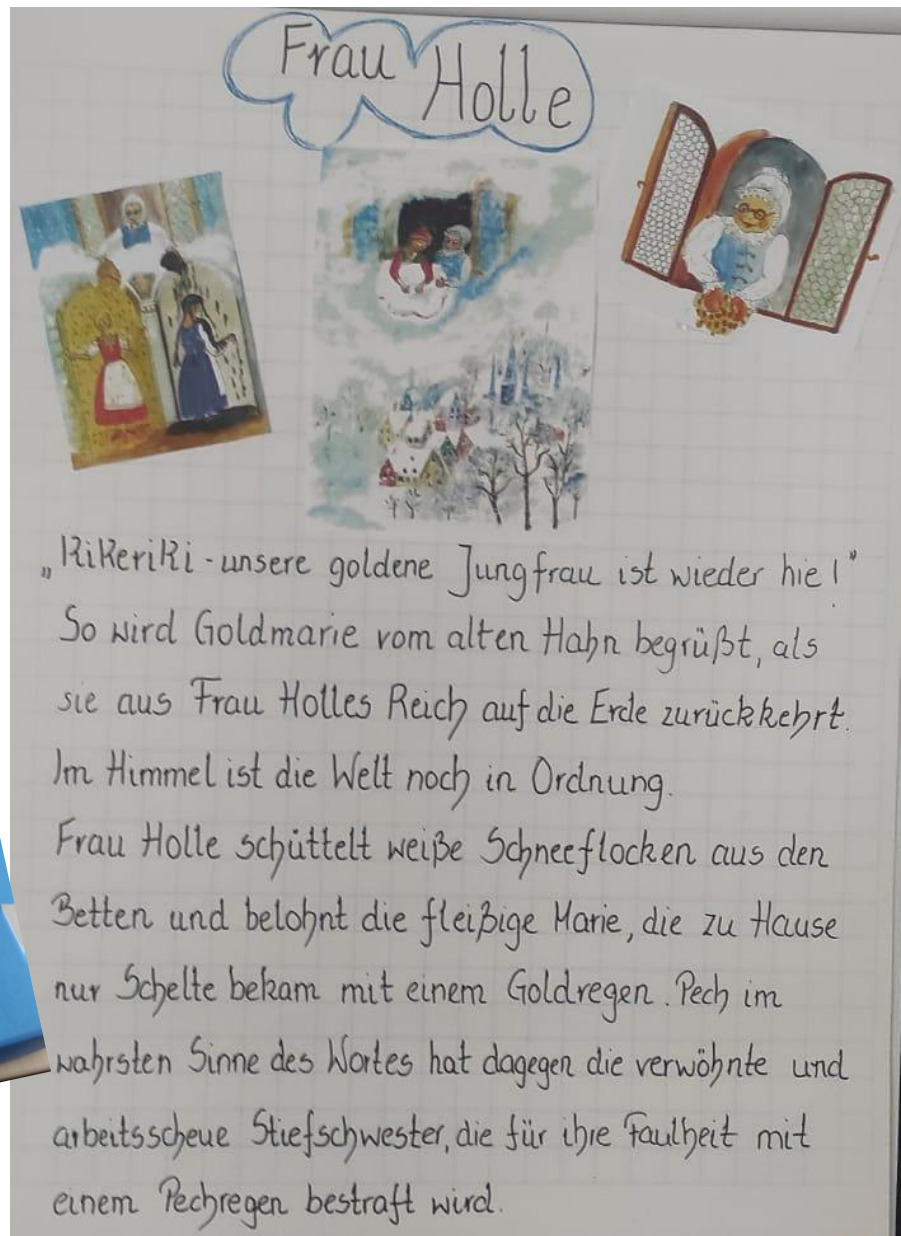 Frau Holle
„Kikeriki - unsere goldene Jungfrau ist wieder hie!"
So wird Goldmarie vom alten Hahn begrüßt, als
sie aus Frau Holles Reich auf die Erde zurückkehrt.
Im Himmel ist die Welt noch in Ordnung.
Frau Holle schüttelt weiße Schneeflocken aus den
Betten und belohnt die fleißige Marie, die zu Hause
nur Schelte bekam mit einem Goldregen. Pech im
wahrsten Sinne des Wortes hat dagegen die verwöhnte und
arbeitsscheue Stiefschwester, die für ihre Faulheit mit
einem Pechregen bestraft wird.